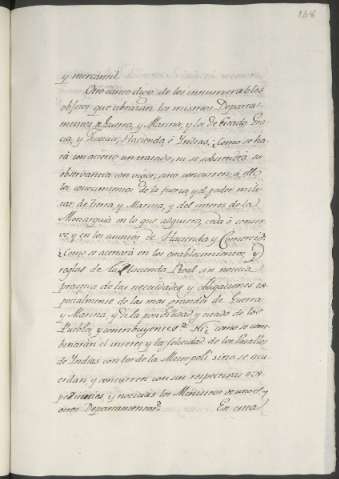 168
y mercantil.
Otro tanto digo de los innumerables
objetos que abrazan los mismos Departa-
mentos de Guerra, y Marina, y los de Estado, Gra-
cia, y Justicia, Hacienda, è Indias. ¿Como se ha-
rá con acierto un tratado, ni se sobstendrá su
observancia con vigor, sino concurren à ello
los conocimientos de la fuerza, y el poder mili-
tar de tierra y Marina, y del interes de la
Monarquia en lo que adquiere, cede ó conser-
va, y en los asuntos de Hacienda y Comercio?
¿Como se acertará en los establecimientos, y
reglas de la Hacienda Real sin noticia
practica de las necesidades y obligaciones es-
pecialmente de las mas grandes de Guerra
y Marina, y de la posibilidad y estado de los
Pueblos contribuyentes? ¿Y como se com-
binarán el interes y la felicidad de los Vasallos
de Indias con los de la Metropoli sino se acu-
erdan y concurren con sus respectivas es-
pecies, y noticias los Ministros de uno y
otros Departamentos?
En suma